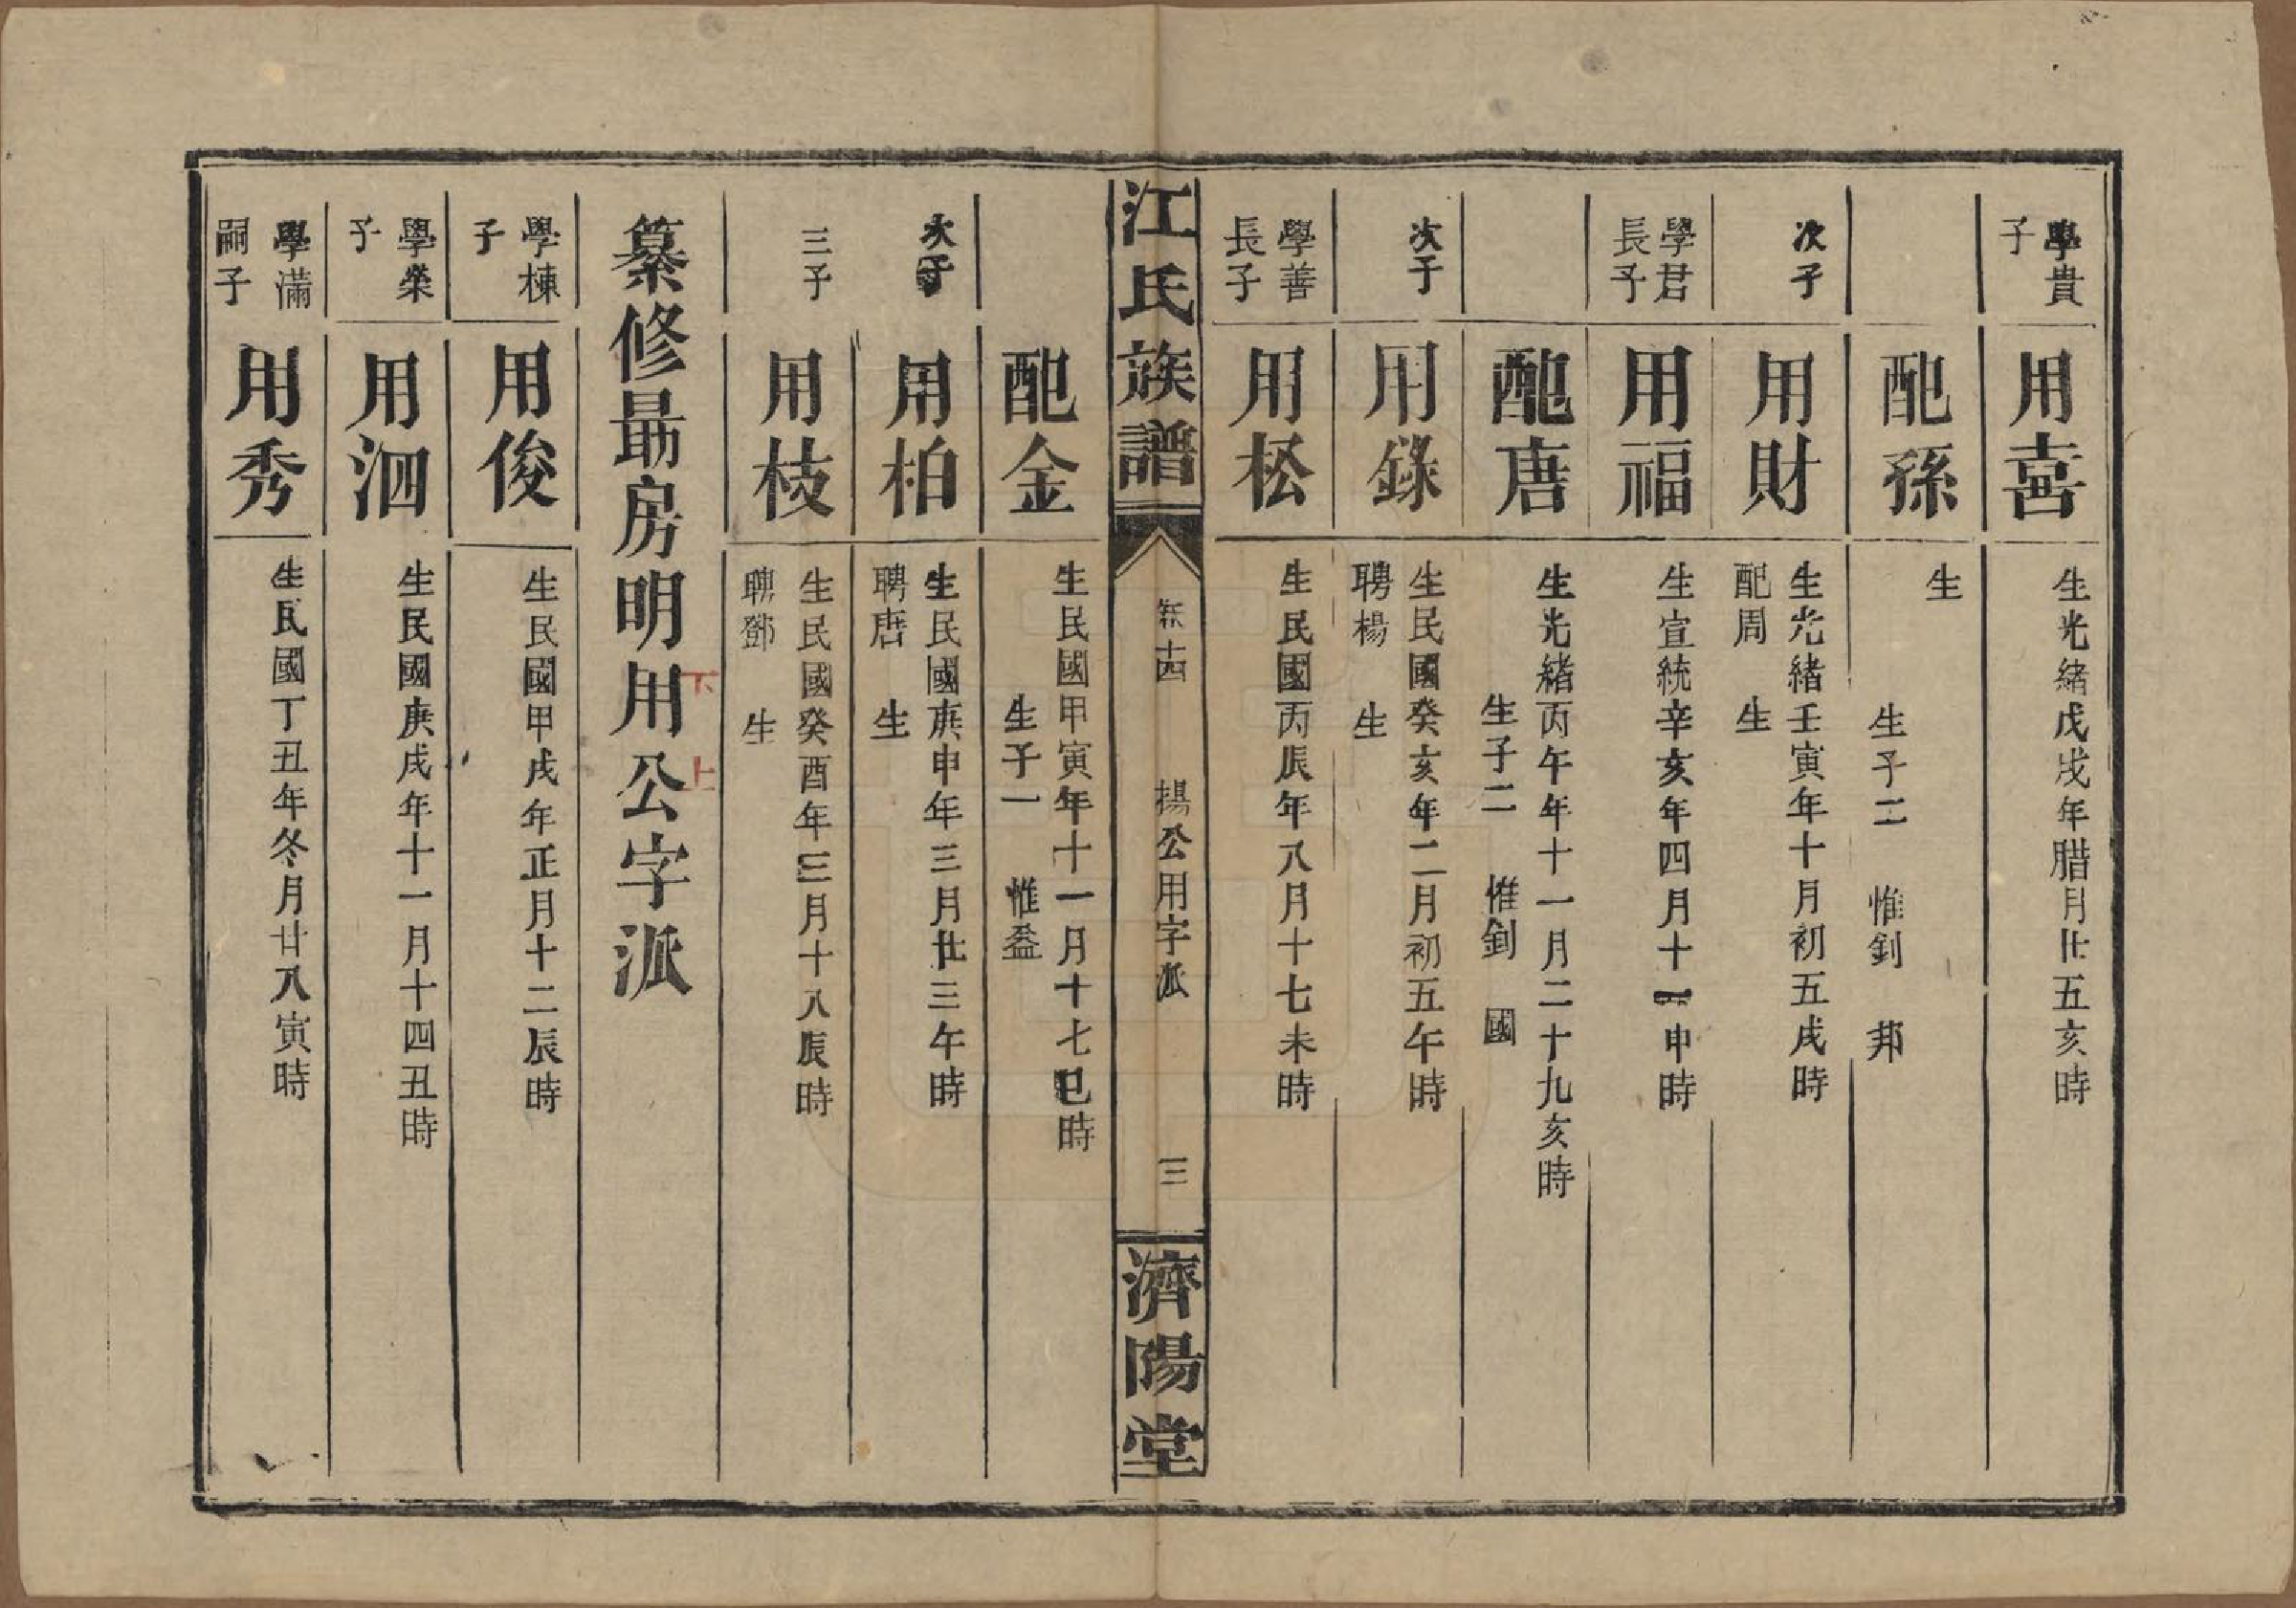 學貴
子
用喜
生光緒戊戌年腊月廿五亥時
配孫
生
生子二　惟釗　邦
次子
用財
生光緒壬寅年十月初五戌時
配周　生
學君
長子
用福
生宣統辛亥年四月十一申時
配唐
生光緒丙午年十一月二十九亥時
生子二　惟釗　國
次子
用錄
生民國癸亥年二月初五午時
聘楊　生
學善
長子
用松
生民國丙辰年八月十七未時
江氏族譜
卷十四　揚公用字派　三
濟陽堂
配金
生民國甲寅年十一月十七巳時
生子一　惟益
次子
用柏
生民國庚申年三月廿三午時
聘唐　生
三子
用枝
生民國癸酉年三月十八辰時
聘鄧　生
纂修最房明用公字派
下
上
學棟
子
用俊
生民國甲戌年正月十二辰時
學榮
子
用泗
生民國庚戌年十一月十四丑時
學滿
嗣子
用秀
生民國丁丑年冬月廿八寅時